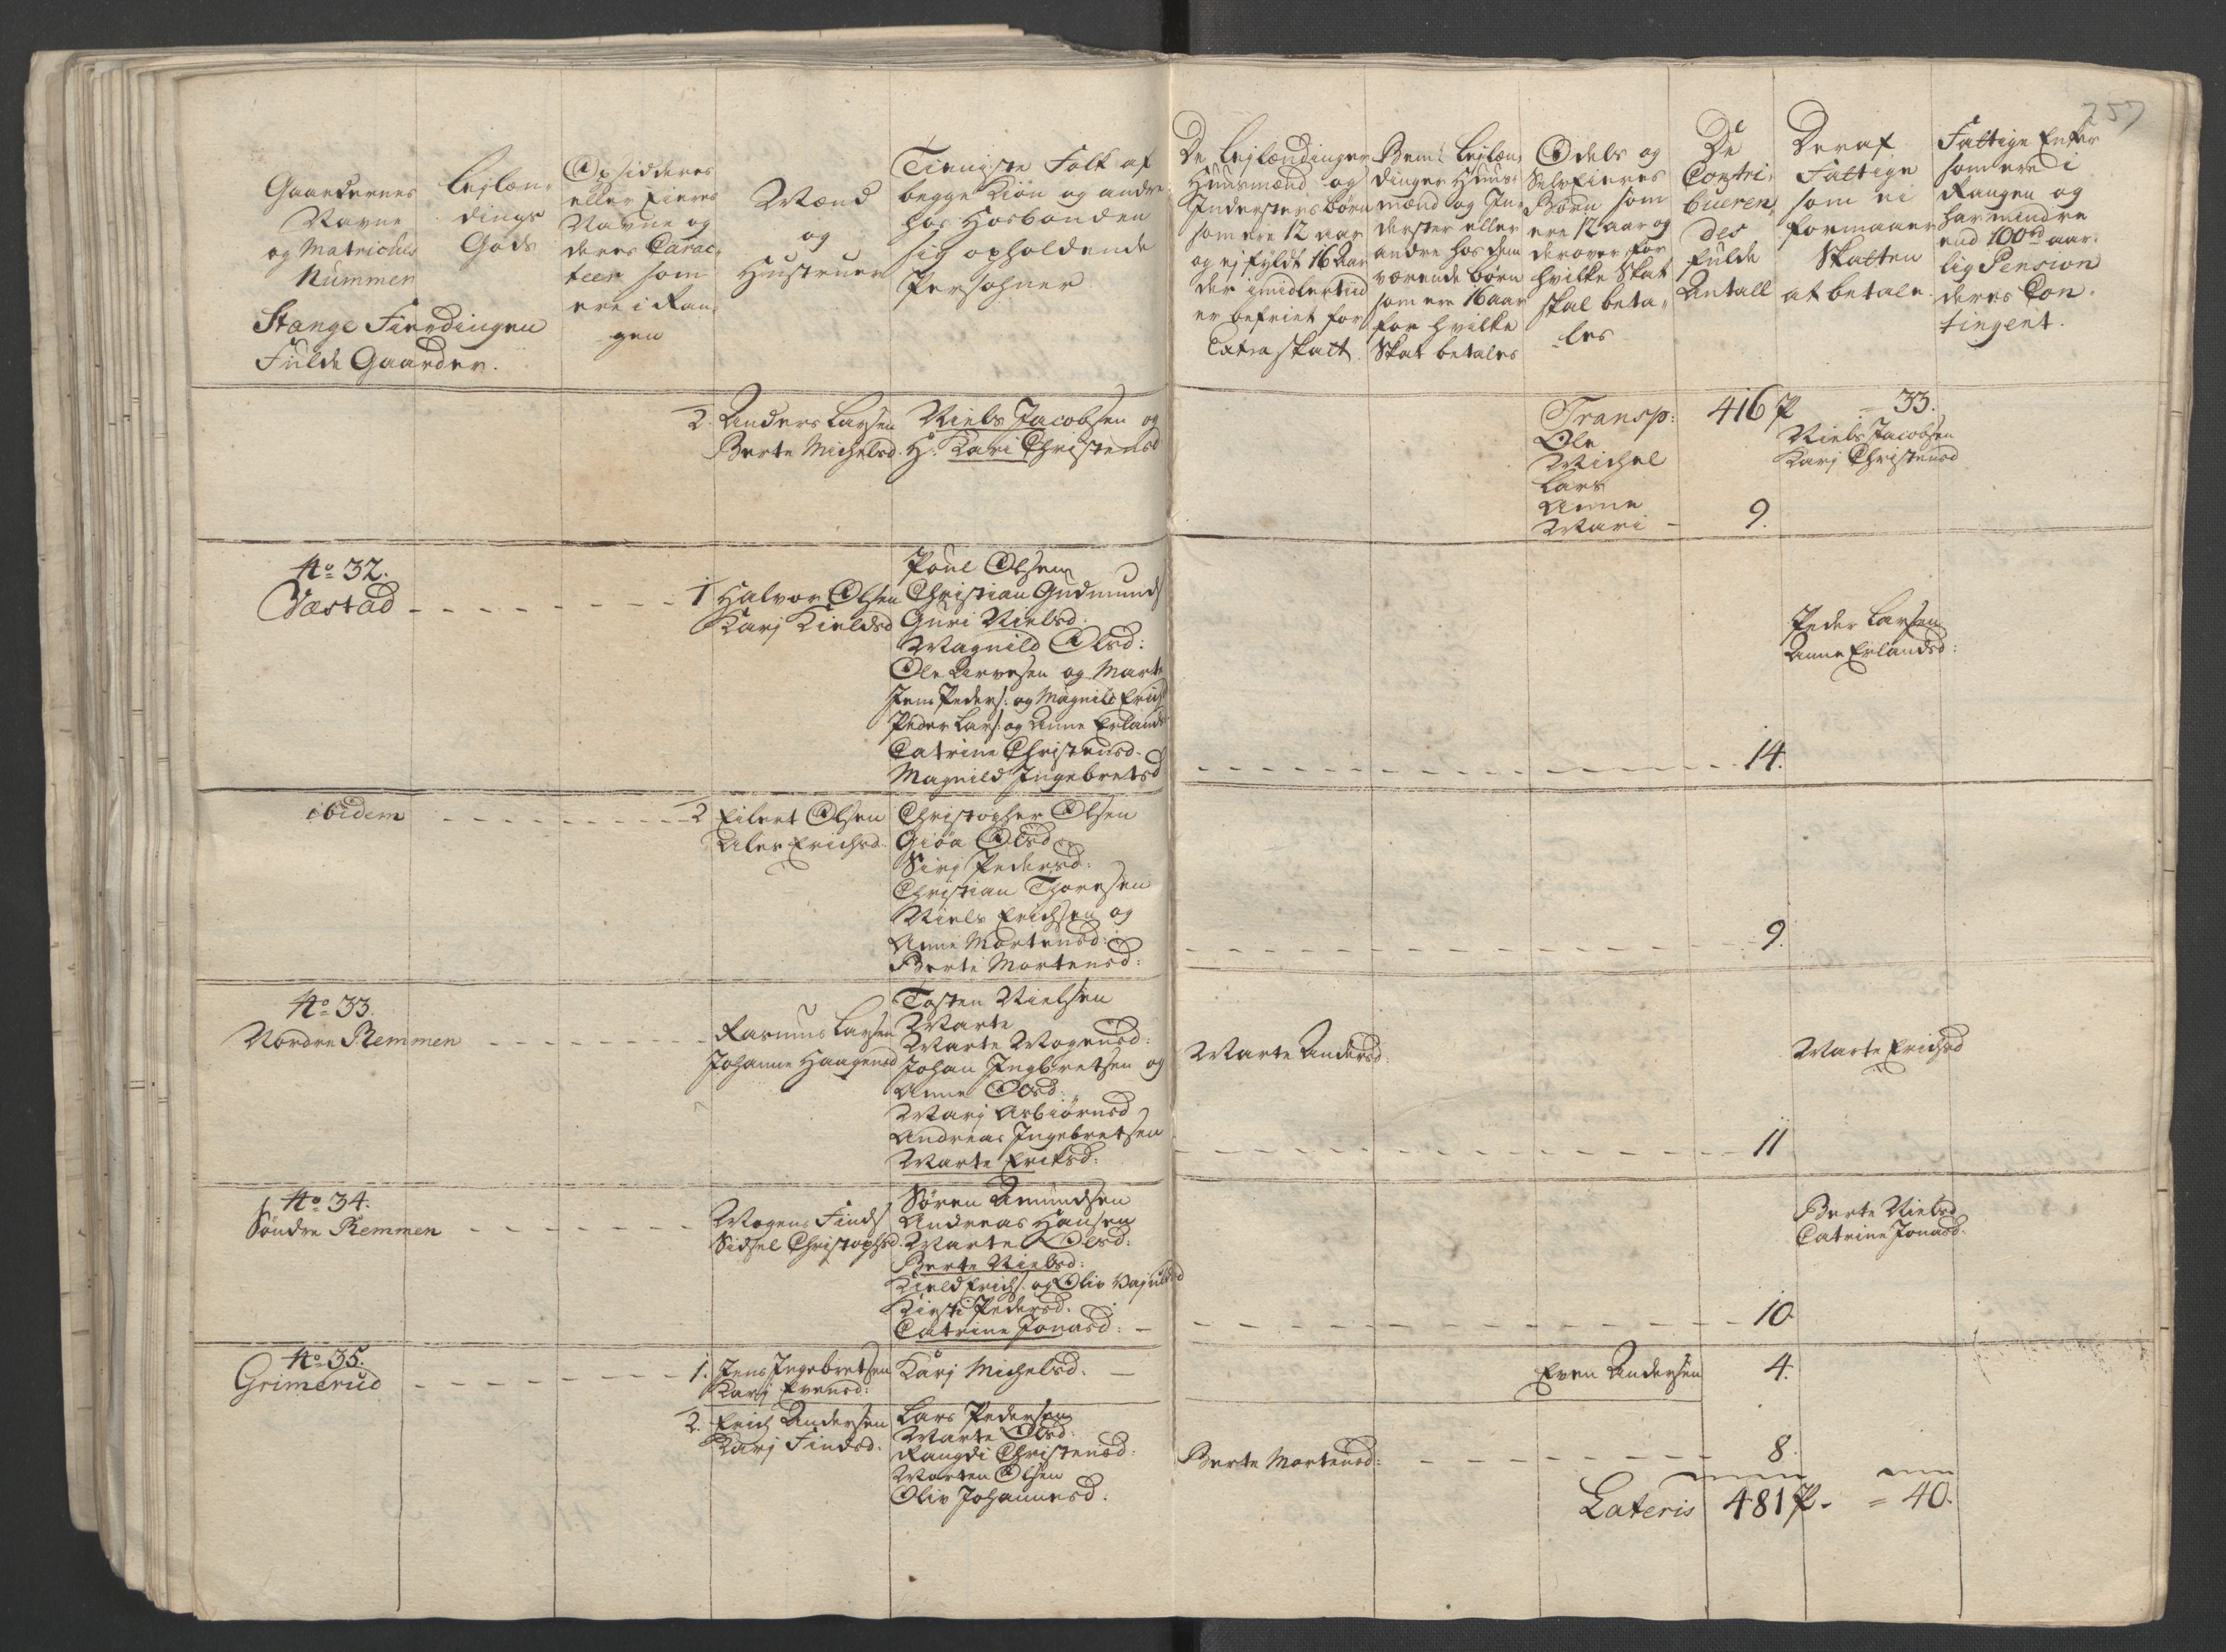 257
Gaardernes
Navne
og Matriculs
Nummer
Stange Fierdingen
Fulde Gaarder.
Lejlæn-
dings
Gods
Opsidderes
eller Eieres
Navne og
deres Carac-
teer som
ere i Ran-
gen
Mænd
og
Hustruer
Tieniste Folk af
begge Kiøn og andre
hos Hosbonden
sig opholdende
Persohner
De Lejlændinger
Huusmænd og
Inderstersbørn
som ere 12 aar
og ej fyldt 16 Aar
der imidlertiid
er befriet for
Extraskatt.
Bem: Lejlæn-
dinger Huus-
mænd og In-
derster eller
andre hos dem
værende børn
som ere 16 aar
for hvilke
Skat betales
Odels og
Selveieres
Børn som
ere 12 aar og
derover for
hvilke Skat
skal beta-
les
De
Contri-
bueren-
des
fulde
Antall
Deraf
Fattige
som ei
formaaer
Skatten
at betale.
Fattige Enker
som ere i
Rangen og
har mindre
end 100 rd aar-
lig Pension
deres Con-
tingent.
2. Anders Larsen
Berte Michelsd.
Niels Jacobsen og
H: Kari Christensd
Transp: 416 P 33.
Ole
Michel
Lars
Anne
Mari - 9.
Niels Jacobsen
Karj Christensd
No 32.
Væstad - - - 1 Halvor Olsen
Karj Kieldsd
Poul Olsen
Christian Gudmunds
Guri Nielsd:
Magnild Olsd:
Ole Arvesen og Marte
Jens Peders: og Magnild Erichs
Peder Lars: og Anne Erlands
Catrine Christensd.
Magnild Ingebretsd
Peder Larsen
Anne Erlandsd:
14.
ibidem - - - 2 Eilert Olsen
Ales Erichsd.
Christopher Olsen
Giøa Olsd
Sirj Pedersd:
Christian Thoresen
Niels Erichsen og
Anne Mortensd:
Berte Mortensd:
9.
No 33.
Nordre Remmen - - - Rasmus Larsen
Johanne Haagensd
Tosten Nielsen
Marte
Marte Mogensd:
Johan Ingbretsen og
Anne Olsd:
Marj Asbiørnsd
Andreas Ingebretsen
Marte Eriksd:
Marte Andersd:
Marte Erichsd
11
No 34.
Søndre Remmen - - - Mogens Finds
Sidsel Christophsd.
Søren Amundsen
Andreas Hansen
Marte Olsd:
Berte Nielsd:
Kield Erichs: og Oliv
Kirsti Pedersd.
Catrine Jonasd: -
Berte Nielsd
Catrine Jonasd.
10.
No 35.
Grimerud - - - 1. Jens Ingebretsen
Karj Evensd:
Karj Michelsd. -
Even Andersen 4.
2. Erich Andersen
Karj Findsd.
Lars Pedersen
Marte Olsd:
Rangdi Christensd:
Morten Olsen
Oliv Johannesd.
Berte Mortensd: - - - 8.
Lateris 481 P. = 40.